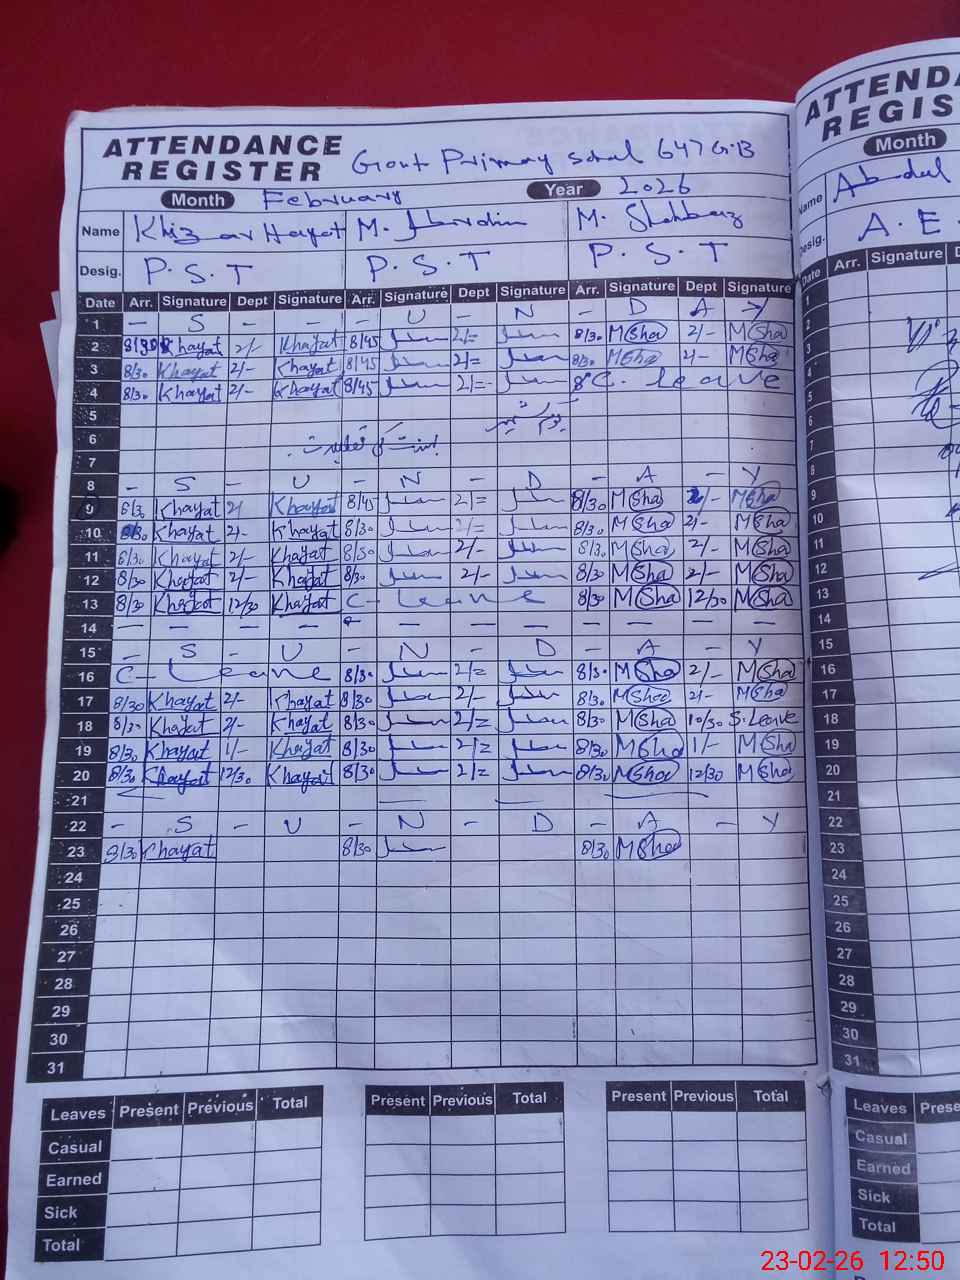 ATTENDANCE REGISTER Govt Primary School 647 G.B
Month February Year 2026
Name Khizar Hayat M. M. Shahbaz
Desig. P.S.T P.S.T P.S.T
Date Arr. Signature Dept Signature Arr. Signature Dept Signature Arr. Signature Dept Signature
1 - S - - - U - N - D A - Y
2 8/30 Khayat 2/- Khayat 8/45 2/= 8/30 MSha 2/- MSha
3 8/30 Khayat 2/- Khayat 8/45 2/= 8/30 MSha 2/- MSha
4 8/30 Khayat 2/- Khayat 8/45 2/= C. leave
5
6 بسنت کی تعطیلات
7
8 - S - U - N - D - A - Y
9 8/30 Khayat 2/- Khayat 8/45 2/= 8/30 MSha 2/- MSha
10 8/30 Khayat 2/- Khayat 8/30 2/= 8/30 MSha 2/- MSha
11 8/30 Khayat 2/- Khayat 8/30 2/- 8/30 MSha 2/- MSha
12 8/30 Khayat 2/- Khayat 8/30 2/- 8/30 MSha 2/- MSha
13 8/30 Khayat 12/30 Khayat C- Leave 8/30 MSha 12/30 MSha
14 - - - - - - - - - - -
15 - S - U - N - D - A - Y
16 C- Leave 8/30 2/= 8/30 MSha 2/- MSha
17 8/30 Khayat 2/- Khayat 8/30 2/- 8/30 MSha 2/- MSha
18 8/30 Khayat 2/- Khayat 8/30 2/= 8/30 MSha 10/30 S.Leave
19 8/30 Khayat 1/- Khayat 8/30 2/= 8/30 MSha 1/- MSha
20 8/30 Khayat 12/30 Khayat 8/30 2/= 8/30 MSha 12/30 MSha
21
22 - S - U - N - D - A - Y
23 8/30 Khayat 8/30 8/30 MSha
24
25
26
27
28
29
30
31
Leaves Present Previous Total Present Previous Total Present Previous Total
Casual
Earned
Sick
Total
ATTENDA
REGIS
Month
Name Abdul
Desig. A.E.
Date Arr. Signature D
1
2
3
4
5
6
7
8
9
10
11
12
13
14
15
16
17
18
19
20
21
22
23
24
25
26
27
28
29
30
31
Leaves Prese
Casual
Earned
Sick
Total
23-02-26 12:50